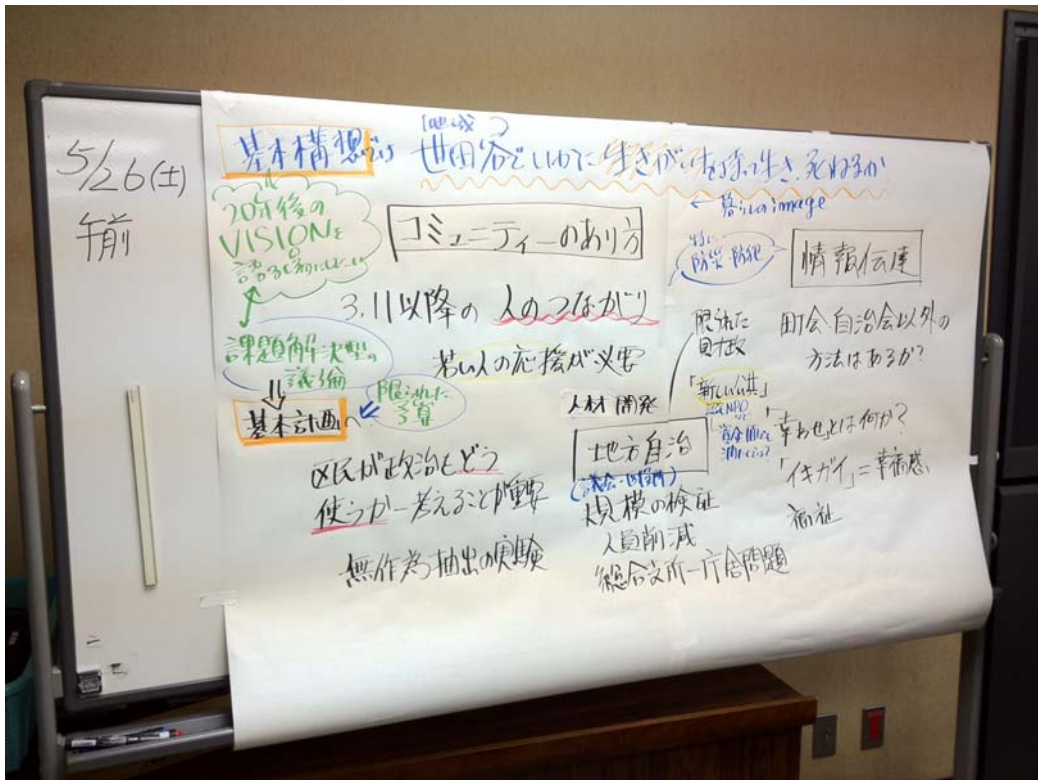 5/26(土)
午前
基本構想づくり
[地域]
世田谷でいかに生きがいを持って生き、死ねるか
← 暮らしのimage
20年後の
VISIONを
コミュニティーのあり方
特に
防災・防犯
情報伝達
3.11以降の 人のつながり
課題解決型の
議論
若い人の応援が必要
限られた
町会・自治会以外の
方法はあるか?
限られた
予算
基本計画へ
人材開発
「新しい公共」
NPO
地方自治
(議会・区役所)
「幸わせとは何か?
「イキガイ」=幸福感
福祉
区民が政治をどう
使うか—考えることが重要
規模の検証
人員削減
無作為抽出の実験
総合支所—庁舎問題